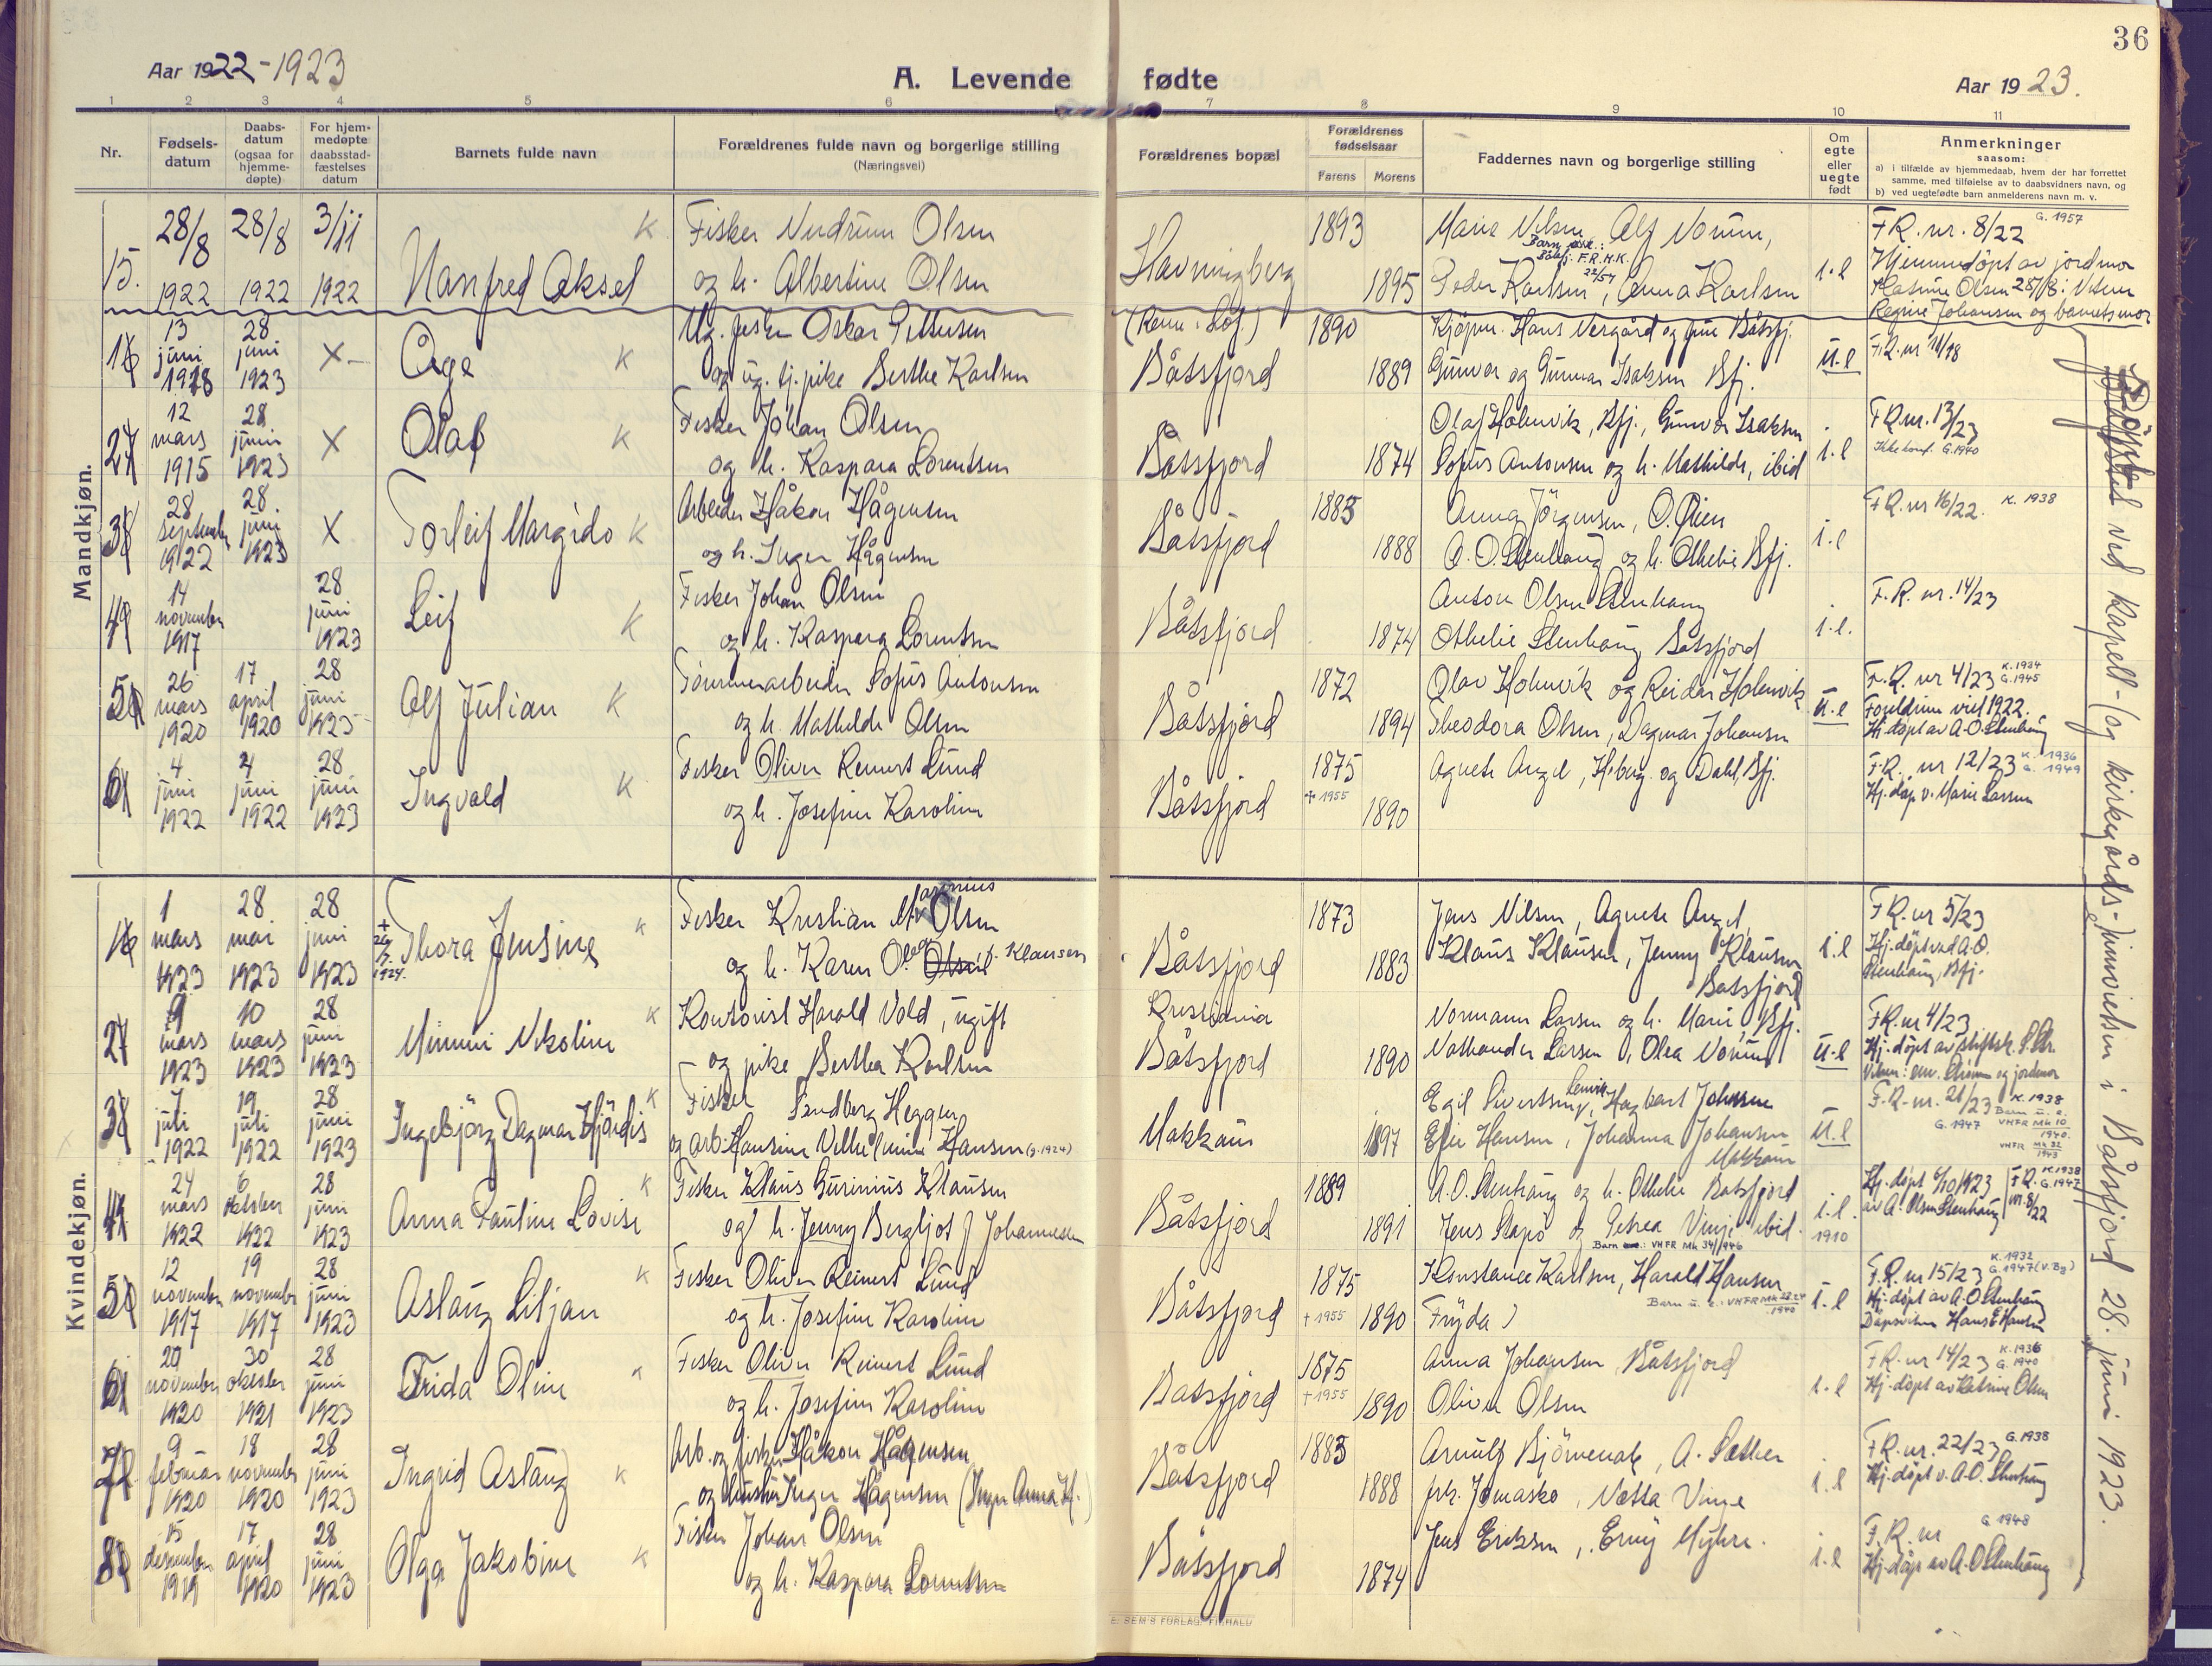 36
Aar 1922-1923
A. Levende fødte
Aar 1923.
1 2 3 4 5 6 7 8 9 10 11
Nr.
Fødsels-
datum
Daabs-
datum
(ogsaa for
hjemme-
døpte)
For hjem-
medøpte
daabsstad-
fæstelses
datum
Barnets fulde navn
Forældrenes fulde navn og borgerlige stilling
(Næringsvei)
Forældrenes bopæl
Forældrenes
fødselsaar
Farens Morens
Faddernes navn og borgerlige stilling
Om
egte
eller
uegte
født
Anmerkninger
saasom:
a) i tilfælde av hjemmedaab, hvem der har forrettet
samme, med tilføielse av to daabsvidners navn, og
b) ved uegtefødte barn anmelderens navn m. v.
Mandkjøn.
15. 28/8 1922 28/8 1922 3/11 1922
Manfred Aksel K
Fisker Olsen
og h. Albertine Olsen
Havningberg
1893 1895
Marie Nilsen, Alf
Peder Karlsen, Anna Karlsen
i-l
F.R. nr. 8/22 G. 1957
Hjemmedøpt av jordmor
Olsen 28/8: Vitner
Johansen og barnets mor
1 13 juni 1918 28 juni 1923 X
Åge K
Ug. fisker Oskar Pettersen
og ug. tj. pike Berthe Karlsen
Båtsfjord
1890 1889
Hans og frue Båtsfj.
Gunvor og Gunnar Isaksen Bfj.
u-l
F.R. nr 11/18
2 12 mars 1915 28 juni 1923 X
Olaf K
Fisker Johan Olsen
og h. Kaspara Lorentsen
Båtsfjord
1874
Olaf Holmvik, Bfj., Gunvor Isaksen
Sofus Antonsen og h. Mathilde, ibid
i-l
F.R. nr. 13/23
Ikke konf. G. 1940
3 28 september 1922 28. juni 1923 X
Torleif Margido K
Arbeider Håkon Hågensen
og h. Inger Hågensen
Båtsfjord
1883 1888
Jörgensen, O.
A. O. Stenhaug og h. Othelie Bfj.
i-l
F.R. nr 16/22. K. 1938
4 14 november 1917 28 juni 1923
Leif K
Fisker Johan Olsen
og h. Kaspara Lorentsen
Båtsfjord
1874
Anton Olsen Stenhaug
Othelie Stenhaug Båtsfjord
i-l.
F.R. nr. 14/23
5 26 mars 1920 17 april 1920 28 juni 1923
Alf Julian K
Sofus Antonsen
og h. Mathilde Olsen
Båtsfjord
1872 1894
Olav Holmvik og Reidar Holmvik
Theodora Olsen, Dagmar Johansen
u-l
F.R. nr 4/23 K. 1934 G. 1945
Foreldrene viet 1922.
Hj. døpt av A. O. Stenhaug
6 4 juni 1922 4 juni 1922 28 juni 1923
Ingvald K
Fisker Oliver Reinert Lund
og h. Josefine Karoline
Båtsfjord
1875 + 1955 1890
Agnete Angel, og Dahl, Bfj.
F.R. nr 12/23 K. 1936 G. 1949
Hj. døp. v. Marie Larsen
Døpt ved kapell-(og kirkegårds-)innvielsen i Båtsfjord 28. juni 1923.
Kvindekjøn.
1 1 mars 1923 28 mai 1923 28 juni 1923
1924.
Thora Jensine K
Fisker Kristian Marinius Olsen
og h. Karen Klausen
Båtsfjord
1873 1883
Jens Nilsen, Agnete Angel,
Klaus Klausen, Jenny Klausen
Båtsfjord
i-l
F.R. nr 5/23
Hj. døpt ved A. O.
Stenhaug, Bfj.
2 9 mars 1923 10 mars 1923 28 juni 1923
Mimmi Nikoline K
Kontorist Harald Vold, ugift
og pike Berthea Karlsen
Kristiania
Båtsfjord
1890
Normann Larsen og h. Marie, Bfj.
Larsen, Olea
u-l
F.R. nr 4/23
Hj. døpt av
og jordmor
3 7 juli 1922 19 juli 1922 28 juni 1923
Ingebjörg Dagmar Hjördis K
Fisker Sandberg
og arb. Hansine Vilhelmine Hansen (g. 1924)
Makkaur
1897
Egil Sivertsen, Hagbart Johnsen
Hansen, Johanna Johansen
Makkaur
u-l
F.R. nr. 21/23 K. 1938
G. 1947
Barn u. e.
VHFR Mk 10
1940
VHFR Mk 32
1943
4 24 mars 1922 6 oktober 1922 28 juni 1923
Anna Pauline Lovise K
Fisker Klaus Klausen
og h. Jenny Bergljot f Johannesen
Båtsfjord
1889 1891
A. O. Stenhaug og h. Othelie Båtsfjord
Jens og Petrea Vinje ibid.
Barn u.e.: VHFR Mk 34/1946
i-l.
1910
Hj. døpt 6/10 1923
av A. Olsen Stenhaug
F.R. nr. 8/22 K. 1938 G. 1947
5 12 november 1917 19 november 1917 28 juni 1923
Aslaug Liljan K
Fisker Oliver Reinert Lund
og h. Josefine Karoline
Båtsfjord
1875 + 1955 1890
Konstance Karlsen, Harald Hansen
Fryda
i-l
K. 1932
F.R. nr 15/23 G. 1947
Hj. døpt av A. O. Stenhaug
Hans E Hansen
6 20 november 1920 30 oktober 1921 28 juni 1923
Frida Oline K
Fisker Oliver Reinert Lund
og h. Josefine Karoline
Båtsfjord
1875 + 1955 1890
Anna Johansen Båtsfjord
Oliver Olsen
i-l
F.R. nr 14/23 K. 1936 G. 1940
Hj. døpt av Katrine Olsen
7 9 februar 1920 18 november 1920 28 juni 1923
Ingrid Aslaug K
Arb. og fisker Håkon Hågensen
og hustru Inger Hågensen (Inger Anna H.)
Båtsfjord
1883 1888
Arnulf, A. Sæther
Netta Vinje
i-l
F.R. nr. 22/23 G. 1938
Hj. døpt v. A. O. Stenhaug
8 15 desember 1919 17 april 1920 28 juni 1923
Olga Jakobine K
Fisker Johan Olsen
og h. Kaspara Lorentsen
Båtsfjord
1874
Jens Eriksen, Erny Myhre.
i-l
F.R. nr G 1948
Hj. døp av A. O Stenhaug
E. SEM'S FORLAG, FR.HALD